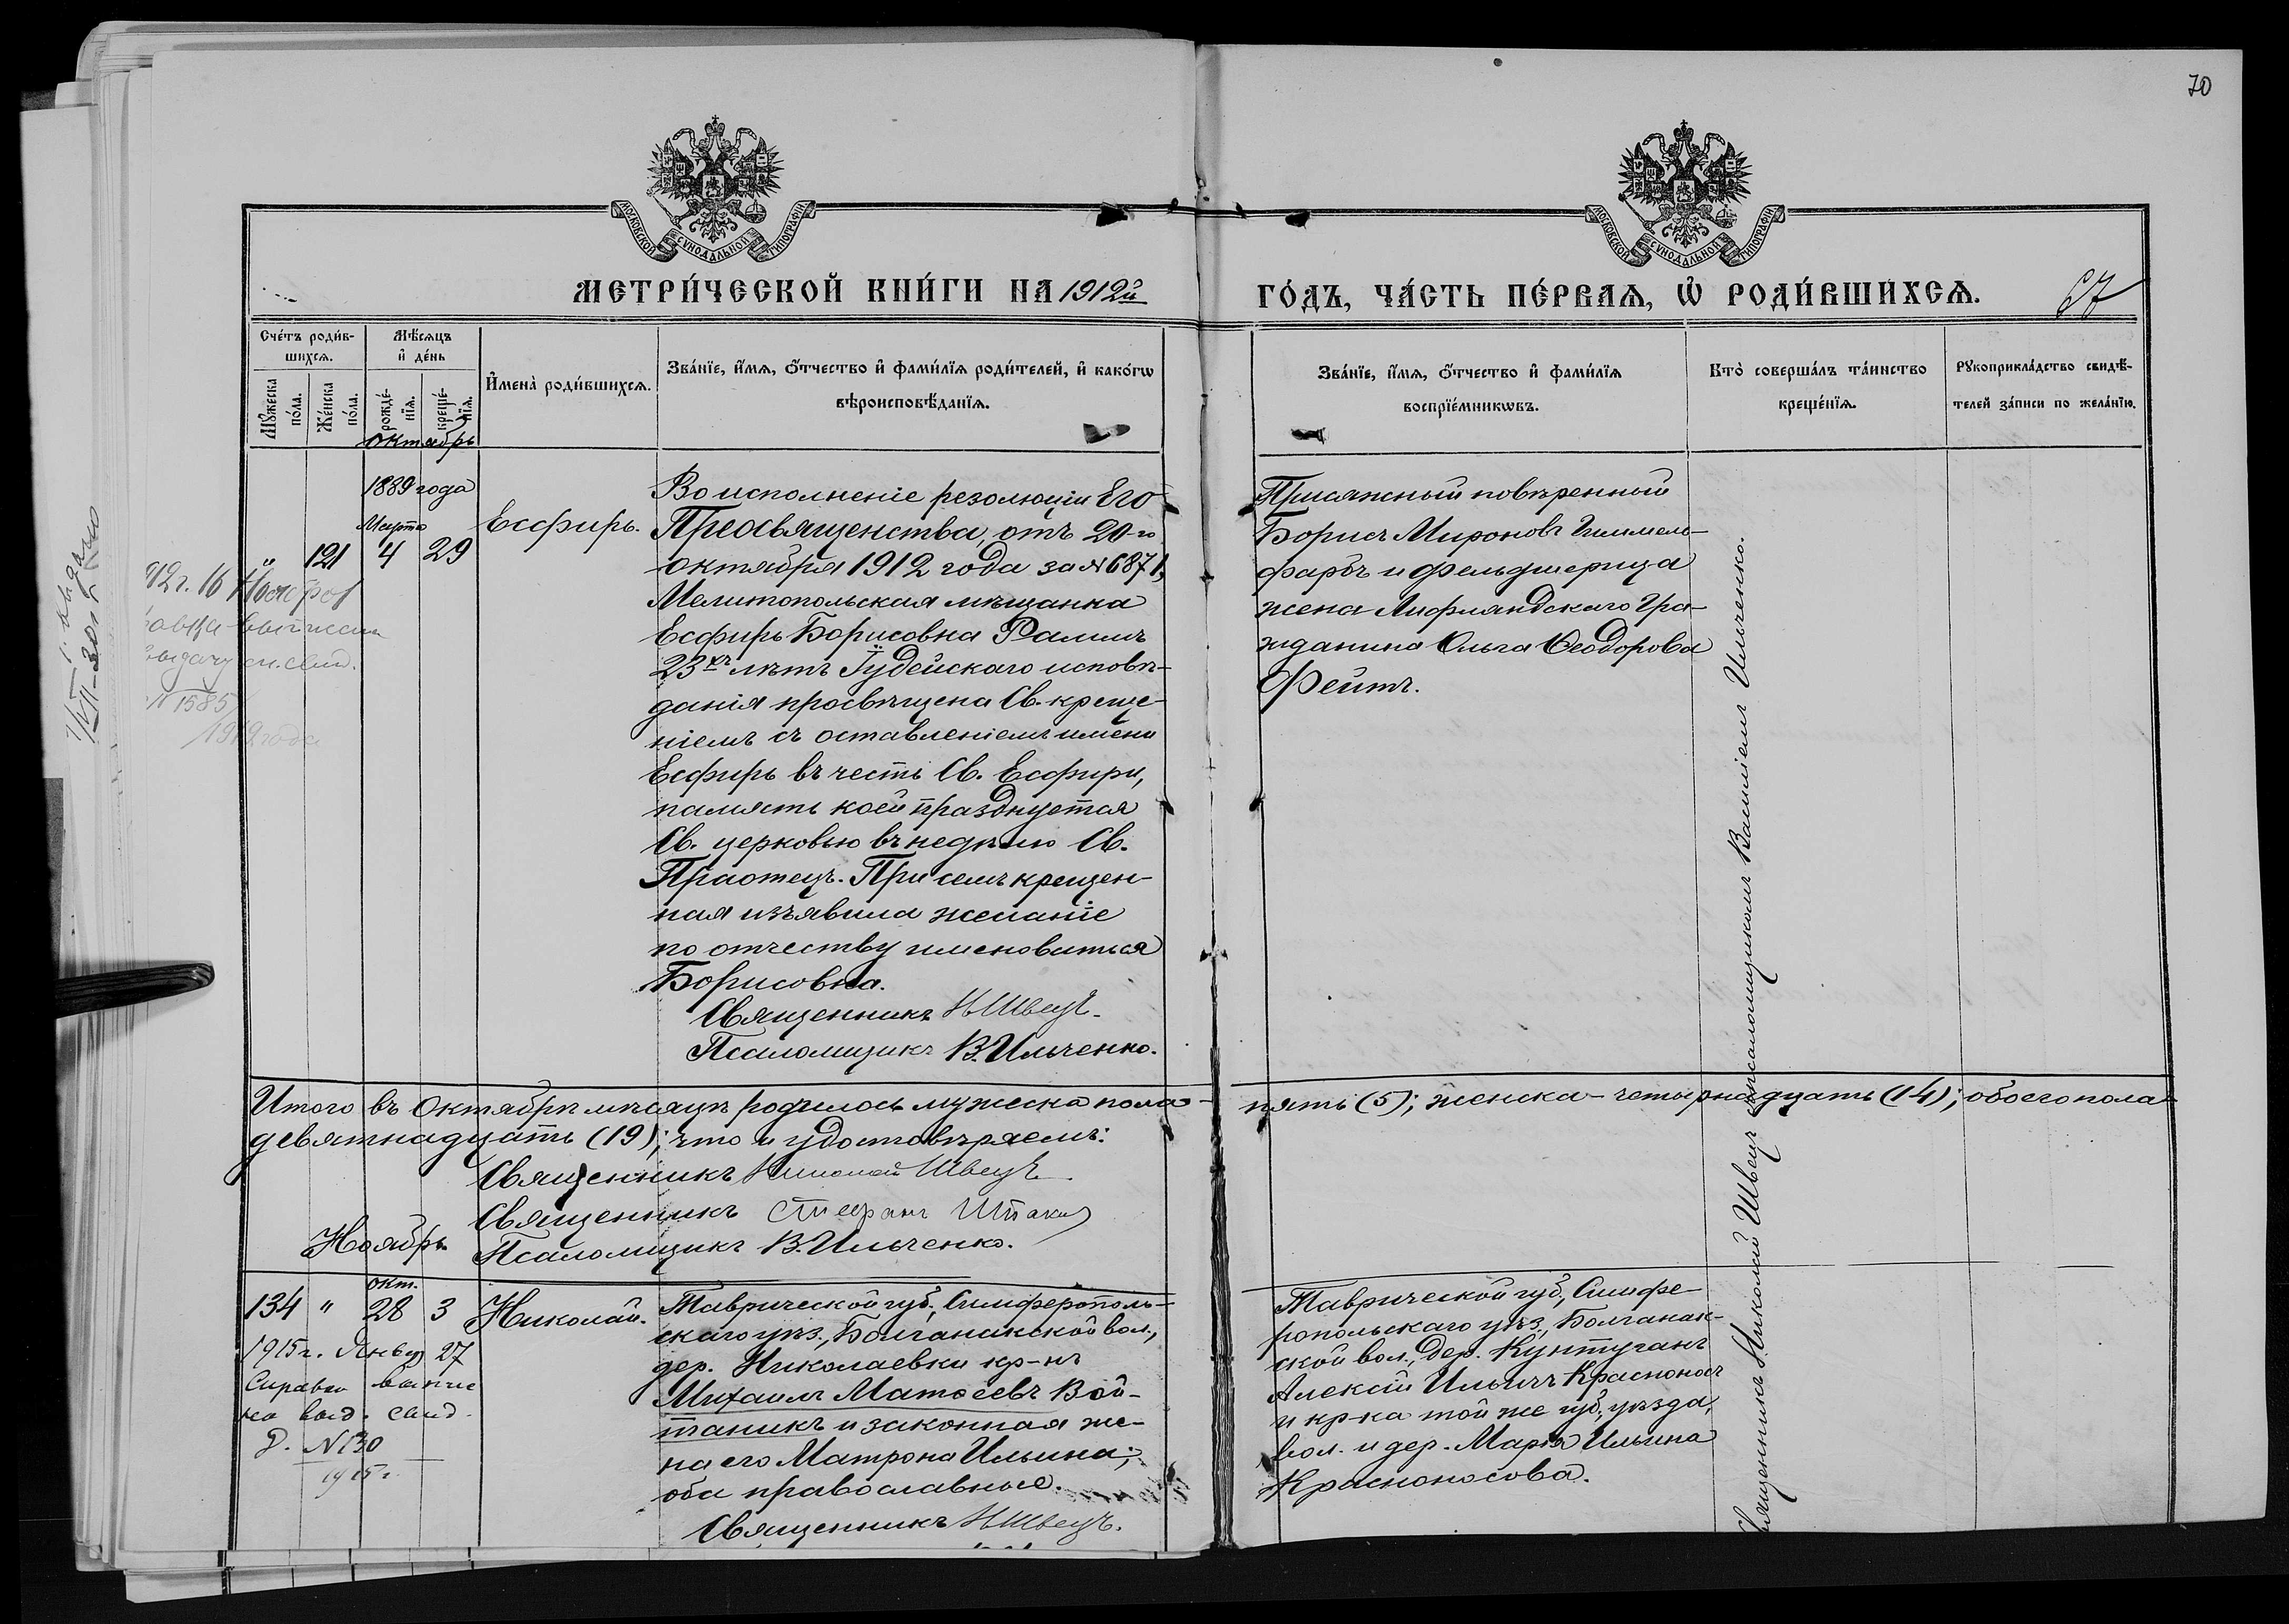 70
МОСКОВСКОЙ СѴНОДАЛЬНОЙ ТИПОГРАФІИ
МОСКОВСКОЙ СѴНОДАЛЬНОЙ ТИПОГРАФІИ
МЕТРИ́ЧЕСКОЙ КНИ́ГИ НА 1912й
ГО́ДЪ, ЧА́СТЬ ПЕ́РВАѦ, Ѡ҆ РОДИ́ВШИХСѦ.
67
Сче́тъ роди́в-
шихсѧ.
Мꙋжеска по́ла.
Же́нска по́ла.
Мѣ́сѧцъ
и҆ де́нь
рожде́-
нїѧ.
креще́-
нїѧ.
И҆мена̀ роди́вшихсѧ.
Зва́нїе, и҆́мѧ, ѻ҆́тчество и҆ фами́лїѧ роди́телей, и҆ како́гѡ
вѣроисповѣ́данїѧ.
Зва́нїе, и҆́мѧ, ѻ҆́тчество и҆ фами́лїѧ
воспрїе́мникѡвъ.
Кто̀ соверша́лъ та́инство
креще́нїѧ.
Рꙋкоприкла́дство свидѣ́-
телей за́писи по жела́нїю.
Октябрь
1889 года
Марта
" 121 4 29
Есфирь.
Во исполненіе резолюціи Его
Преосвященства, отъ 20-го
октября 1912 года за № 6871,
Мелитопольская мѣщанка
Есфирь Борисовна Рампъ
23хъ лѣтъ Іудейскаго исповѣ-
данія просвѣщена Св. креще-
ніемъ съ оставленіемъ имени
Есфирь въ честь Св. Есфири,
память коей празднуется
Св. церковью въ недѣлю Св.
Праотецъ. При семъ крещен-
ная изъявила желаніе
по отчеству именоваться
Борисовна.
Священникъ Н Швецъ.
Псаломщикъ В. Ильченко.
Присяжный повѣренный
Борисъ Мироновъ Гиммель-
фарбъ и фельдшерица
жена Лифляндскаго Гра-
жданина Ольга Ѳеодорова
Фейтъ.
Священникъ Николай Швецъ съ псаломщикомъ Василіемъ Ильченко.
12 г. 16
выдачу св. свид.
N 1585
1912 года
Итого въ Октябрѣ мѣсяцѣ родилось мужеска пола - пять (5); женска - четырнадцать (14); обоего пола
девятнадцать (19); что и удостовѣряемъ:
Священникъ Николай Швецъ
Священникъ Стефанъ
Псаломщикъ В. Ильченко.
Ноябрь
окт.
134 " 28 3
Николай.
1915 г. Январ 27
Справка выписа
на выд. свид.
Д. N 130
1915 г.
Таврической губ., Симферополь-
скаго уѣз., Болганакской вол.,
дер. Николаевки кр-нъ
Михаилъ Матѳеевъ Вой-
таникъ и законная же-
на его Матрона Ильина;
оба православные.
Священникъ Н Швецъ.
Таврической губ., Симфе-
ропольскаго уѣз., Болганак-
ской вол., дер. Кунтуганъ
Алексій Ильичъ Красноносъ
и кр-ка той же губ., уѣзда,
вол. и дер. Марія Ильина
Красноносова.